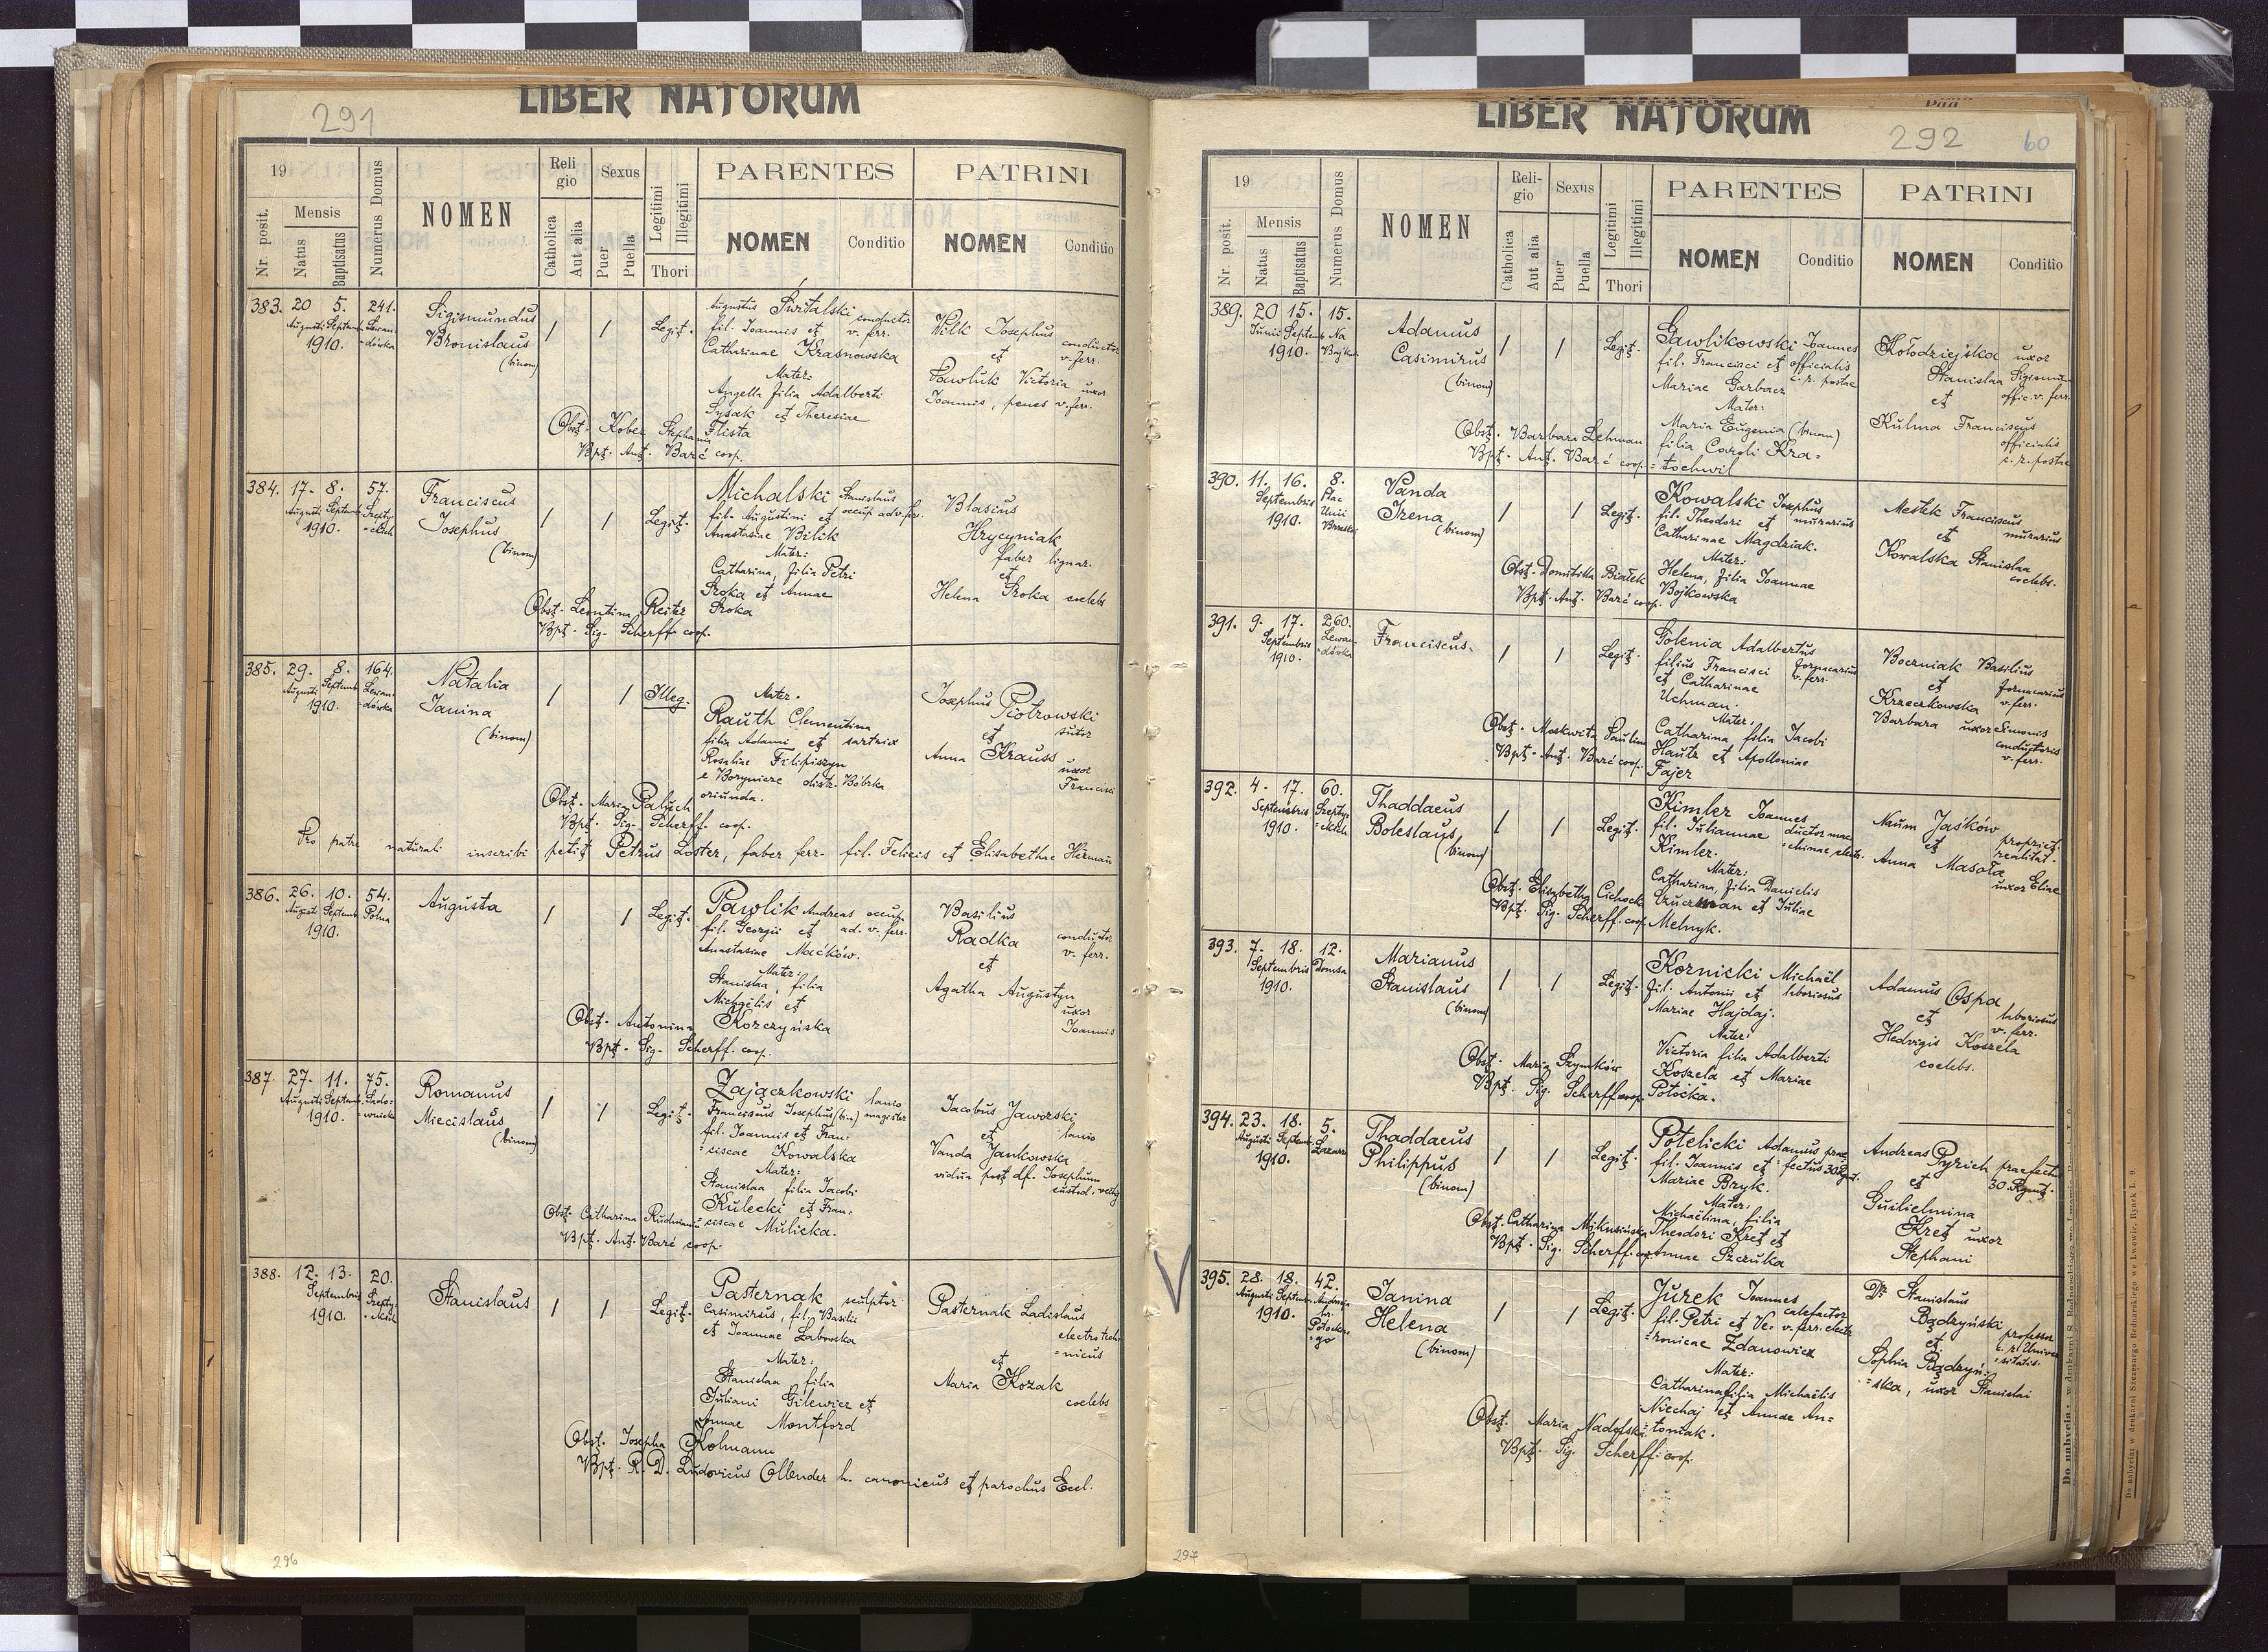 291
LIBER NATORUM
19
Nr. posit.
Mensis
Natus
Baptisatus
Numerus Domus
NOMEN
Religio
Catholica
Aut alia
Sexus
Puer
Puella
Legitimi
Illegitimi
Thori
PARENTES
NOMEN
Conditio
PATRINI
NOMEN
Conditio
383. 20 5. 241.
Augusti Septemb. Lewan-
1910. -dówka
Sigismundus
Bronislaus
(binom)
/ / Legit.
Augustus Świtalski conductor
fil. Joannis et v. ferr.
Catharinae Krasnowska
Mater:
Angella filia Adalberti
Sysak et Theresiae
Flista
Wilk Josephus
conductor
et v. ferr.
Pawluk Victoria uxor
Joannis, penes v. ferr.
Obst. Kober Stephania
Bpt. Ant. Barć coop.
384. 17. 8. 57.
Augusti Septemb. Szepty-
1910. -ckich
Franciscus
Josephus
(binom)
/ / Legit.
Michalski Stanislaus
fil. Augustini et occup. ad v. ferr.
Anastasiae Bilik
Mater:
Catharina, filia Petri
Sroka et Annae
Sroka
Blasius
Hrycyniak
faber lignar.
et
Helena Sroka coelebs
Obst. Leontina Reiter
Bpt. Sig. Scherff. coop.
385. 29. 8. 164.
Augusti Septemb. Lewan-
1910. -dówka
Natalia
Janina
(binom)
/ / Illeg.
Mater.
Rauth Clementina
filia Adami et sartrix
Rosaliae Filipiszyn
e Borynicze distr. Bóbrka
oriunda.
Josephus Piotrowski
et sutor
Anna Krauss
uxor
Francisci
Obst. Maria Paluch
Bpt. Sig. Scherff. coop.
Pro patre naturali inscribi petit Petrus Loster, faber ferr. fil. Felicis et Elisabethae Herman
386. 26. 10. 54.
Augusti Septemb. Polna
1910.
Augusta
/ / Legit.
Pawlik Andreas occup.
fil. Georgii et ad. v. ferr.
Anastasiae Maćków.
Mater:
Stanislaa, filia
Michaëlis et
Korczyńska
Basilius
Radka conductor
et v. ferr.
Agatha Augustyn
uxor
Joannis
Obst. Antonina
Bpt. Sig. Scherff. coop.
387. 27. 11. 75.
Augusti Septemb. Sado-
1910. -wnicka
Romanus
Miecislaus
(binom)
/ / Legit.
Zajączkowski lanio
Franciscus Josephus (bin) magister
fil. Joannis et Fran-
-ciscae Kowalska
Mater:
Stanislaa filia Jacobi
Kulecki et Fran-
-ciscae Mulicka.
Jacobus Jaworski
et lanio
Vanda Jankowska
vidua post df. Josephum
custod. vectig.
Obst. Catharina Rudman
Bpt. Ant. Barć coop.
388. 12. 13. 20.
Septembris Szepty-
1910. -ckich
Stanislaus
/ / Legit.
Pasternak sculptor
Casimirus, fil. Basilii
et Joannae Labowska
Mater:
Stanislaa filia
Juliani Gilewicz et
Annae Montford
Pasternak Ladislaus
electrotech-
-nicus
et
Maria Kozak
coelebs
Obst. Josepha Kolmann
Bpt. R. D. Ludovicus Ollender h. canonicus et parochus Eccl.
296
LIBER NATORUM
292
60
19
Nr. posit.
Mensis
Natus
Baptisatus
Numerus Domus
NOMEN
Religio
Catholica
Aut alia
Sexus
Puer
Puella
Legitimi
Illegitimi
Thori
PARENTES
NOMEN
Conditio
PATRINI
NOMEN
Conditio
389. 20 15. 15.
Junii Septemb. Na
1910. Bajki
Adamus
Casimirus
(binom)
/ / Legit.
Gawlikowski Joannes
fil. Francisci et officialis
Mariae Garbacz c. r. postae
Mater:
Maria Eugenia (binom)
filia Caroli Kra-
-tochwil
Kołodziejska uxor
Stanislaa Sigismun-
et offic. v. ferr.
Kulma Franciscus
officialis
c. r. postae
Obst. Barbara Lehman
Bpt. Ant. Barć coop.
390. 11. 16. 8.
Septembris Plac
1910. Unii
Brzeskiej
Vanda
Irena
(binom)
/ / Legit.
Kowalski Josephus
fil. Theodori et murarius
Catharinae Magdziak.
Mater:
Helena, filia Joannae
Bojkowska
Mestek Franciscus
et murarius
Kowalska Stanislaa
coelebs.
Obst. Domitilla Białek
Bpt. Ant. Barć coop.
391. 9. 17. 260.
Septembris Lewan-
1910. -dówka
Franciscus.
/ / Legit.
Golenia Adalbertus
filius Francisci fornacarius
et Catharinae v. ferr.
Uchman.
Mater:
Catharina filia Jacobi
Hautz et Apolloniae
Fajer
Boczniak Basilius
et fornacarius
Krzeczkowska v. ferr.
Barbara uxor Simonis
conductoris
v. ferr.
Obst. Moskwita Paulina
Bpt. Ant. Barć coop.
392. 4. 17. 60.
Septembris Szepty-
1910. -ckich
Thaddaeus
Boleslaus
(binom)
/ / Legit.
Kimler Joannes
fil. Juliannae ductor ma-
Kimler. -chinae electr.
Mater:
Catharina, filia Danielis
Czuczman et Juliae
Melnyk.
Naum Jaśków
et propriet.
realitat.
Anna Masota
uxor Eliae
Obst. Elisabetha Cichocka
Bpt. Sig. Scherff. coop.
393. 7. 18. 12.
Septembris Domsa
1910.
Marianus
Stanislaus
(binom)
/ / Legit.
Kornicki Michaël
fil. Antonii et laboriosus
Mariae Hajdaj.
Mater:
Victoria filia Adalberti
Koszela et Mariae
Potocka.
Adamus Ospa
et laboriosus
v. ferr.
Hedvigis Koszela
coelebs.
Obst. Maria Szymków
Bpt. Sig. Scherff coop.
394. 23. 18. 5.
Augusti Septemb. Łazarza
1910.
Thaddaeus
Philippus
(binom)
/ / Legit.
Potelicki Adamus prae-
fil. Joannis et -fectus 30 Rgmt.
Mariae Bzyk.
Mater:
Michaëlina, filia
Theodori Kret et
Annae Szczruka
Andreas Pyrich praefectus
et 30. Rgmt.
Guilielmina
Kret uxor
Stephani
Obst. Catharina Mikusińska
Bpt. Sig. Scherff. coop.
395. 28. 18. 42.
Augusti Septemb. Andreja
1910. hr.
Potockie-
-go
Janina
Helena
(binom)
/ / Legit.
Jurek Joannes
calefactor
fil. Petri et Ve- v. ferr. electr.
-ronicae Zdanowicz
Mater:
Catharina filia Michaëlis
Niechaj et Annae An-
-toniak.
Dr Stanislaus
Bądzyński
professor
et c. r. Univer-
-sitatis.
Sophia Bądzyń-
-ska, uxor Stanislai
Obst. Maria Nadolska
Bpt. Sig. Scherff. coop.
297